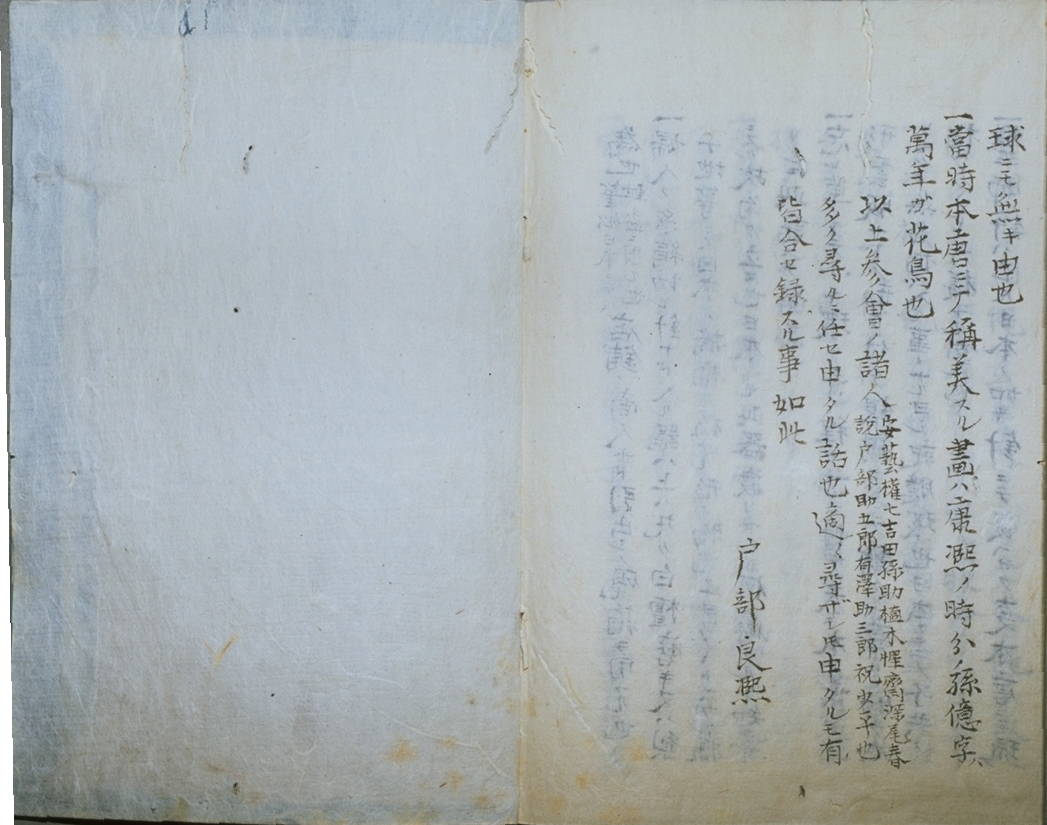 球ニモ無キ由也
一當時本唐ニテ稱美スル畫ハ康熙ノ時分ノ孫億字ハ
萬年ガ花鳥也
以上参會ノ諸人安藝權七吉田孫助植木惺齋深尾春
説戸部助五郎有澤助三郎祝少平也
多ク尋ルニ任セ申タル話也適〻尋ザレ𪜈申タルモ有
皆合セ録スル事如此
戸部良熙